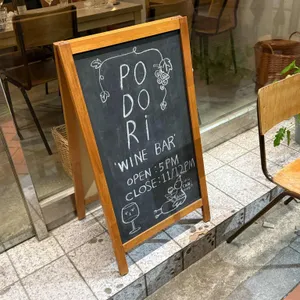 PO
DO
Ri
'WINE BAR'
OPEN : 5PM
CLOSE : 11/12PM